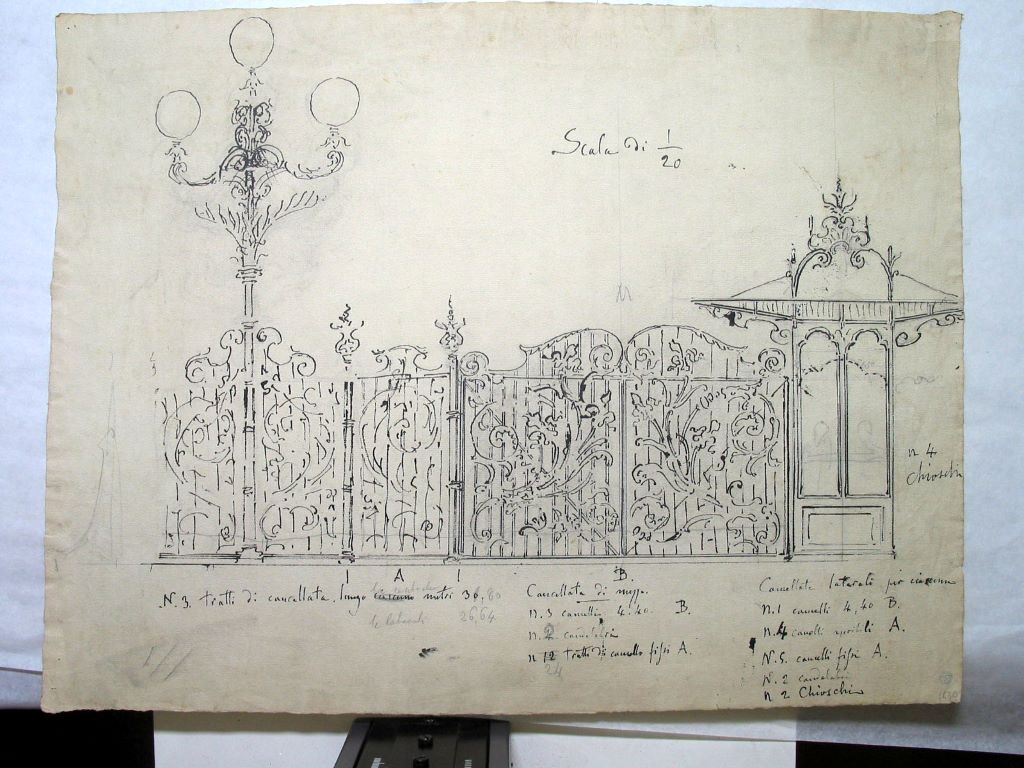 Scala di 1/20
n 4
Chioschi
A
B.
N. 3. tratti di cancellata. lungo ciascuno metri 36,80
26,64
Cancellata di mezzo.
n. 3 cancelli 4.40. B.
n. 2 candelabri
n 12 tratti di cancello fissi A.
24
Cancellate laterali per ciascuna
N. 1 cancelli 4,40 B.
n. 4 cancelli apribili A.
N. 5. cancelli fissi A.
N. 2 candelabri
n 2 Chioschi